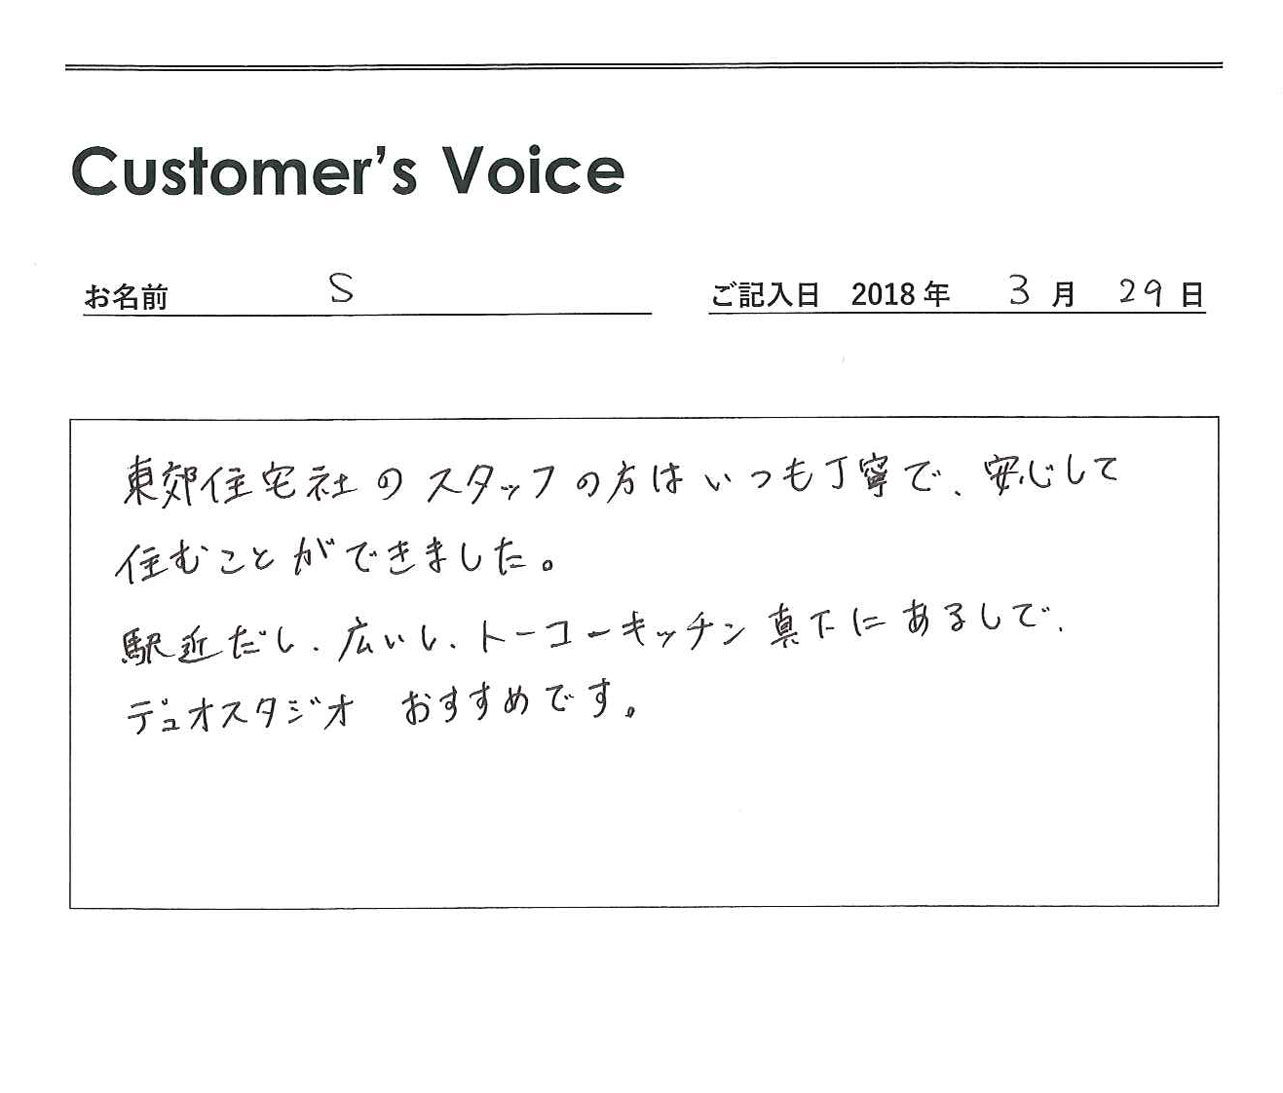 Customer's Voice
お名前 S
ご記入日 2018年 3月 29日
東郊住宅社のスタッフの方はいつも丁寧で、安心して
住むことができました。
駅近だし、広いし、トーコーキッチン真下にあるしで、
デュオスタジオ おすすめです。